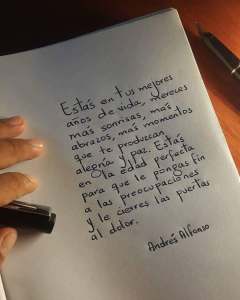 Estás en tus mejores
años de vida, mereces
más sonrisas, más
abrazos, más momentos
que te produzcan
alegría y paz. Estás
en la edad perfecta
para que le pongas fin
a las preocupaciones
y le cierres las puertas
al dolor.
Andrés Alfonso